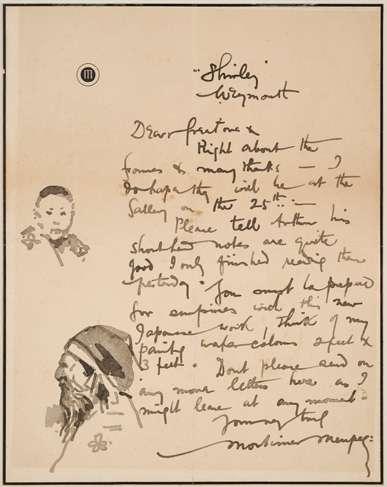 "Shirley"
Weymouth
Dear &
Right about the
frames & many thanks — I
do hope they will be at the
Gallery on the 25th —
Please tell his
notes are quite
good I only finished reading them
yesterday. You must be prepared
for surprises with this new
Japanese work, think of my
painting water colours 2 feet x
3 feet. Dont please send on
any more letters here as I
might leave at any moment
Yours very truly
Mortimer Menpes: